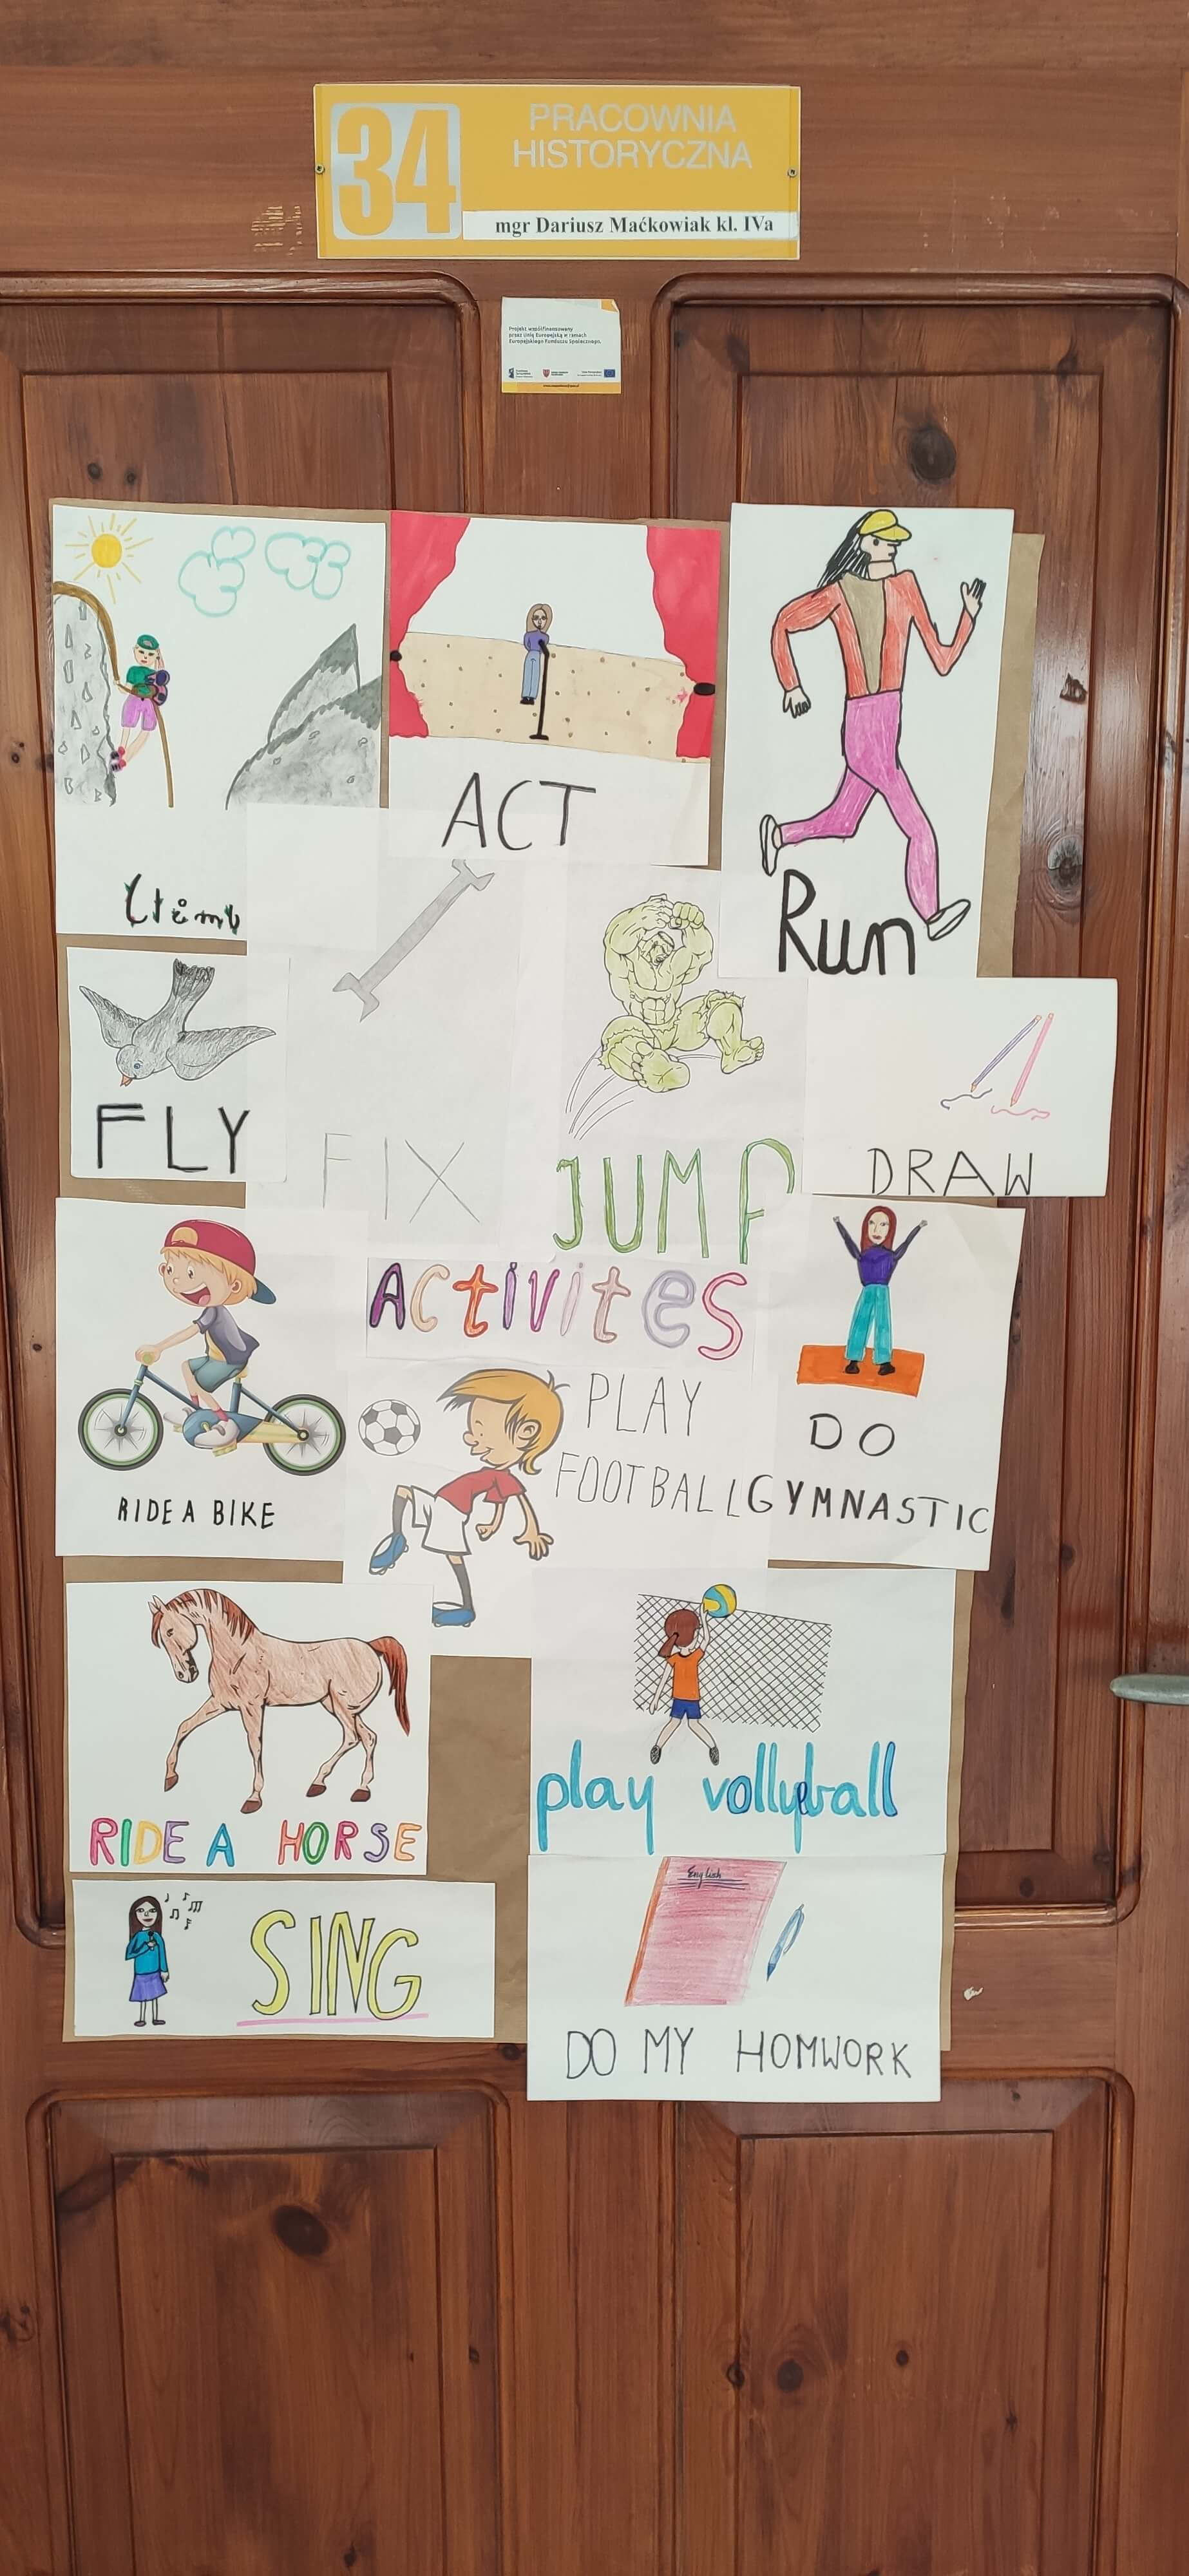 34
PRACOWNIA
HISTORYCZNA
mgr Dariusz Maćkowiak kl. IVa
Projekt współfinansowany
przez Unię Europejską w ramach
Europejskiego Funduszu Społecznego.
ACT
Climb
Run
FLY
FIX
JUMP
DRAW
ACtivites
RIDE A BIKE
PLAY
FOOTBALL
DO
GYMNASTIC
RIDE A HORSE
play vollyball
SING
English
DO MY HOMWORK